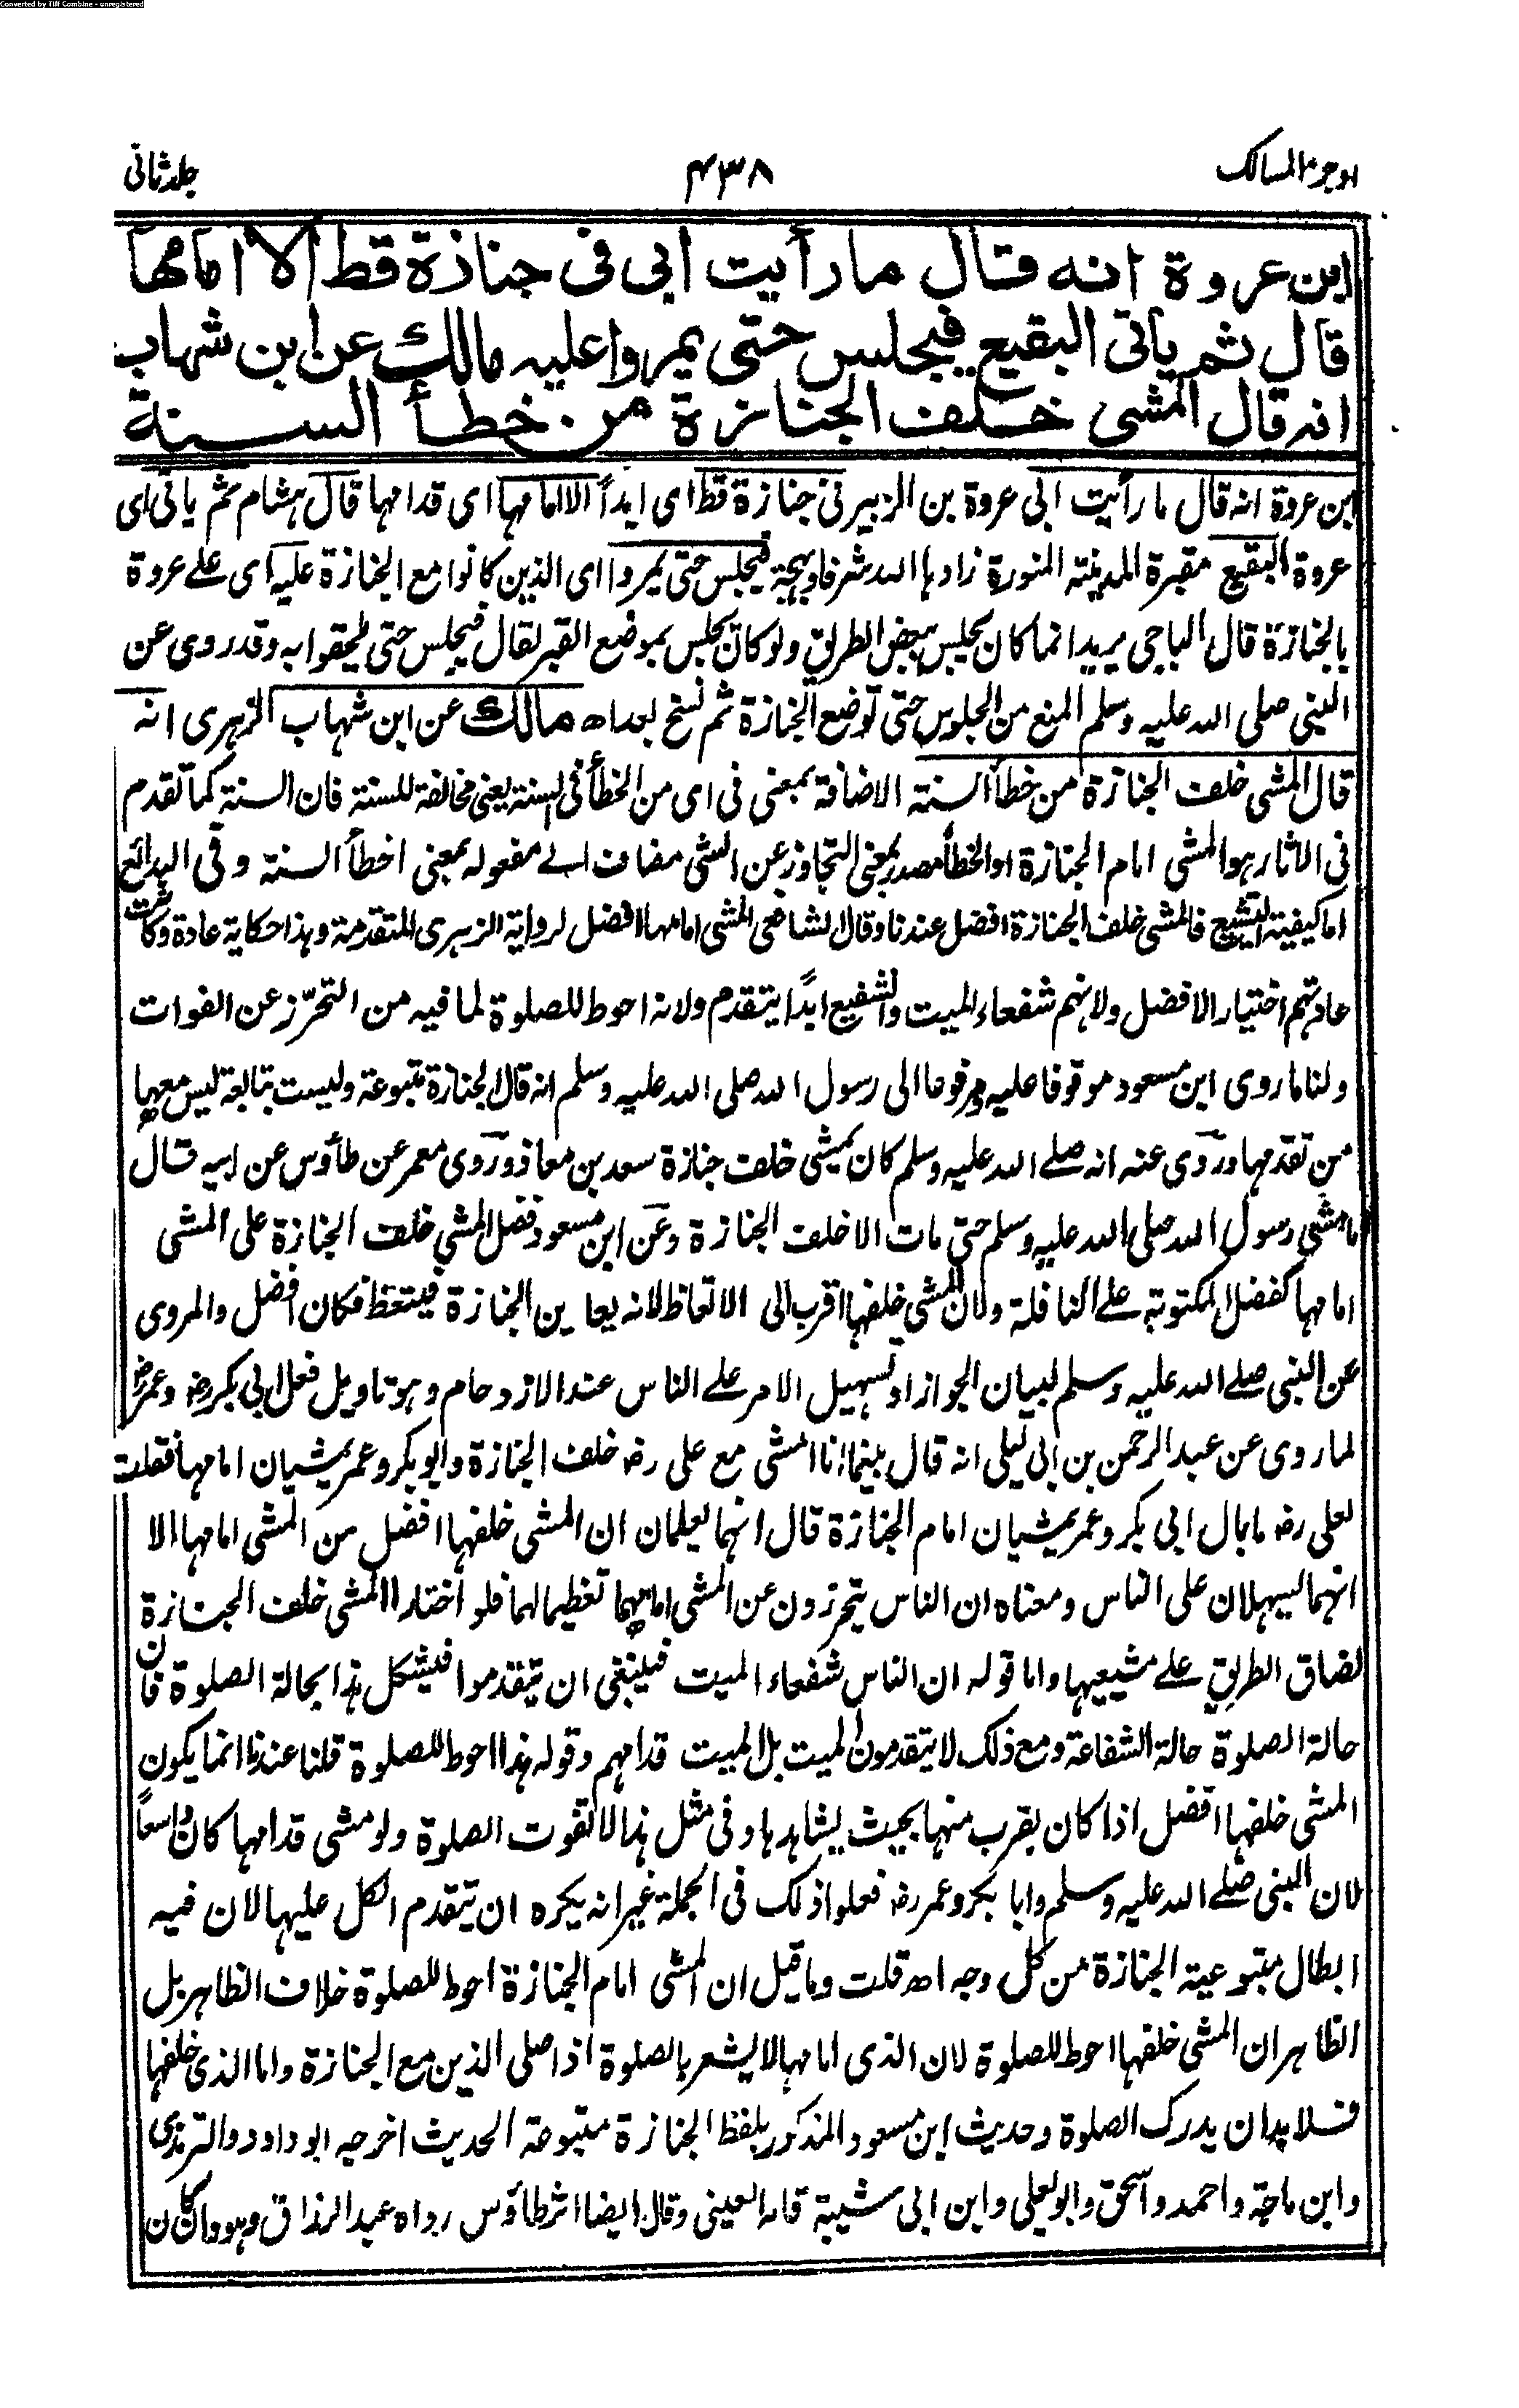 Converted by Tiff Combine - unregistered
اوجز المسالك ۴۳۸ جلد ثانى
ابن عروة انه قال ما رأيت ابى فى جنازة قط الا امامها
قال ثم يأتى البقيع فيجلس حتى يمروا عليه مالك عن ابن شهاب
انه قال المشى خلف الجنازة من خطأ السنة
بن عروة انه قال ما رأيت ابى عروة بن الزبير فى جنازة قط اى ابدا الا امامها اى قدامها قال هشام ثم ياتى اى
عروة البقيع مقبرة المدينة المنورة زادها الله شرفا وبهجة فيجلس حتى يمروا اى الذين كانوا مع الجنازة عليه اى على عروة
بالجنازة قال الباجى يريد انما كان يجلس ببعض الطريق ولو كان يجلس بموضع القبر لقال فيجلس حتى يلحقوا به وقد روى عن
النبى صلى الله عليه وسلم المنع من الجلوس حتى توضع الجنازة ثم نسخ بعد اه مالك عن ابن شهاب الزهرى انه
قال المشى خلف الجنازة من خطأ السنة الاضافة بمعنى فى اى من الخطأ فى السنة يعنى مخالفة للسنة فان السنة كما تقدم
فى الاثار هو المشى امام الجنازة او الخطأ مصدر بمعنى التجاوز عن الشى مضاف الى مفعوله بمعنى اخطأ السنة وفى البدائع
اما كيفية التشييع فالمشى خلف الجنازة افضل عندنا وقال الشافعى المشى امامها افضل لرواية الزهرى المتقدمة وهذا حكاية عادة وكانت
عادتهم اختيار الافضل ولانهم شفعاء الميت والشفيع ابدًا يتقدم ولانه احوط للصلوة لما فيه من التحرّز عن الفوات
ولنا ما روى ابن مسعود موقوفا عليه ومرفوعا الى رسول الله صلى الله عليه وسلم انه قال الجنازة متبوعة وليست بتابعة ليس معها
من تقدمها وروى عنه انه صلى الله عليه وسلم كان يمشى خلف جنازة سعد بن معاذ وروى معمر عن طاؤس عن ابيه قال
ما مشى رسول الله صلى الله عليه وسلم حتى مات الا خلف الجنازة وعن ابن مسعود فضل المشى خلف الجنازة على المشى
امامها كفضل المكتوبة على النافلة ولان المشى خلفها اقرب الى الاتعاظ لانه يعاين الجنازة فيتعظ فكان افضل والمروى
عن النبى صلى الله عليه وسلم لبيان الجواز او تسهيل الامر على الناس عند الازدحام وهو تاويل فعل ابى بكر رض وعمر رض
لما روى عن عبد الرحمن بن ابى ليلى انه قال بينما انا امشى مع على رض خلف الجنازة وابو بكر وعمر يمشيان امامها فقلت
لعلى رض ما بال ابى بكر وعمر يمشيان امام الجنازة قال انهما يعلمان ان المشى خلفها افضل من المشى امامها الا
انهما ليسهلان على الناس ومعناه ان الناس يتحرزون عن المشى امامها تعظيما لهما فلو اختارا المشى خلف الجنازة
لضاق الطريق على مشيعيها واما قوله ان الناس شفعاء الميت فينبغى ان يتقدموا فيشكل هذا بحالة الصلوة فان
حالة الصلوة حالة الشفاعة ومع ذلك لا يتقدمون الميت بل الميت قدامهم وقوله هذا احوط للصلوة قلنا عندنا انما يكون
المشى خلفها افضل اذا كان بقرب منها بحيث يشاهدها وفى مثل هذا لا تفوت الصلوة ولو مشى قدامها كان واسعًا
لان النبى صلى الله عليه وسلم وابا بكر وعمر رض فعلوا ذلك فى الجملة غير انه يكره ان يتقدم الكل عليها لان فيه
ابطال متبوعية الجنازة من كل وجه اه قلت وما قيل ان المشى امام الجنازة احوط للصلوة خلاف الظاهر بل
الظاهر ان المشى خلفها احوط للصلوة لان الذى امامها لا يشعر بالصلوة اذا صلى الذين مع الجنازة واما الذى خلفها
فلا بد ان يدرك الصلوة وحديث ابن مسعود المذكور بلفظ الجنازة متبوعة الحديث اخرجه ابو داود والترمذى
وابن ماجة واحمد واسحق وابو يعلى وابن ابى شيبة قاله العينى وقال ايضا اثر طاؤس رواه عبد الرزاق وهو وان كان